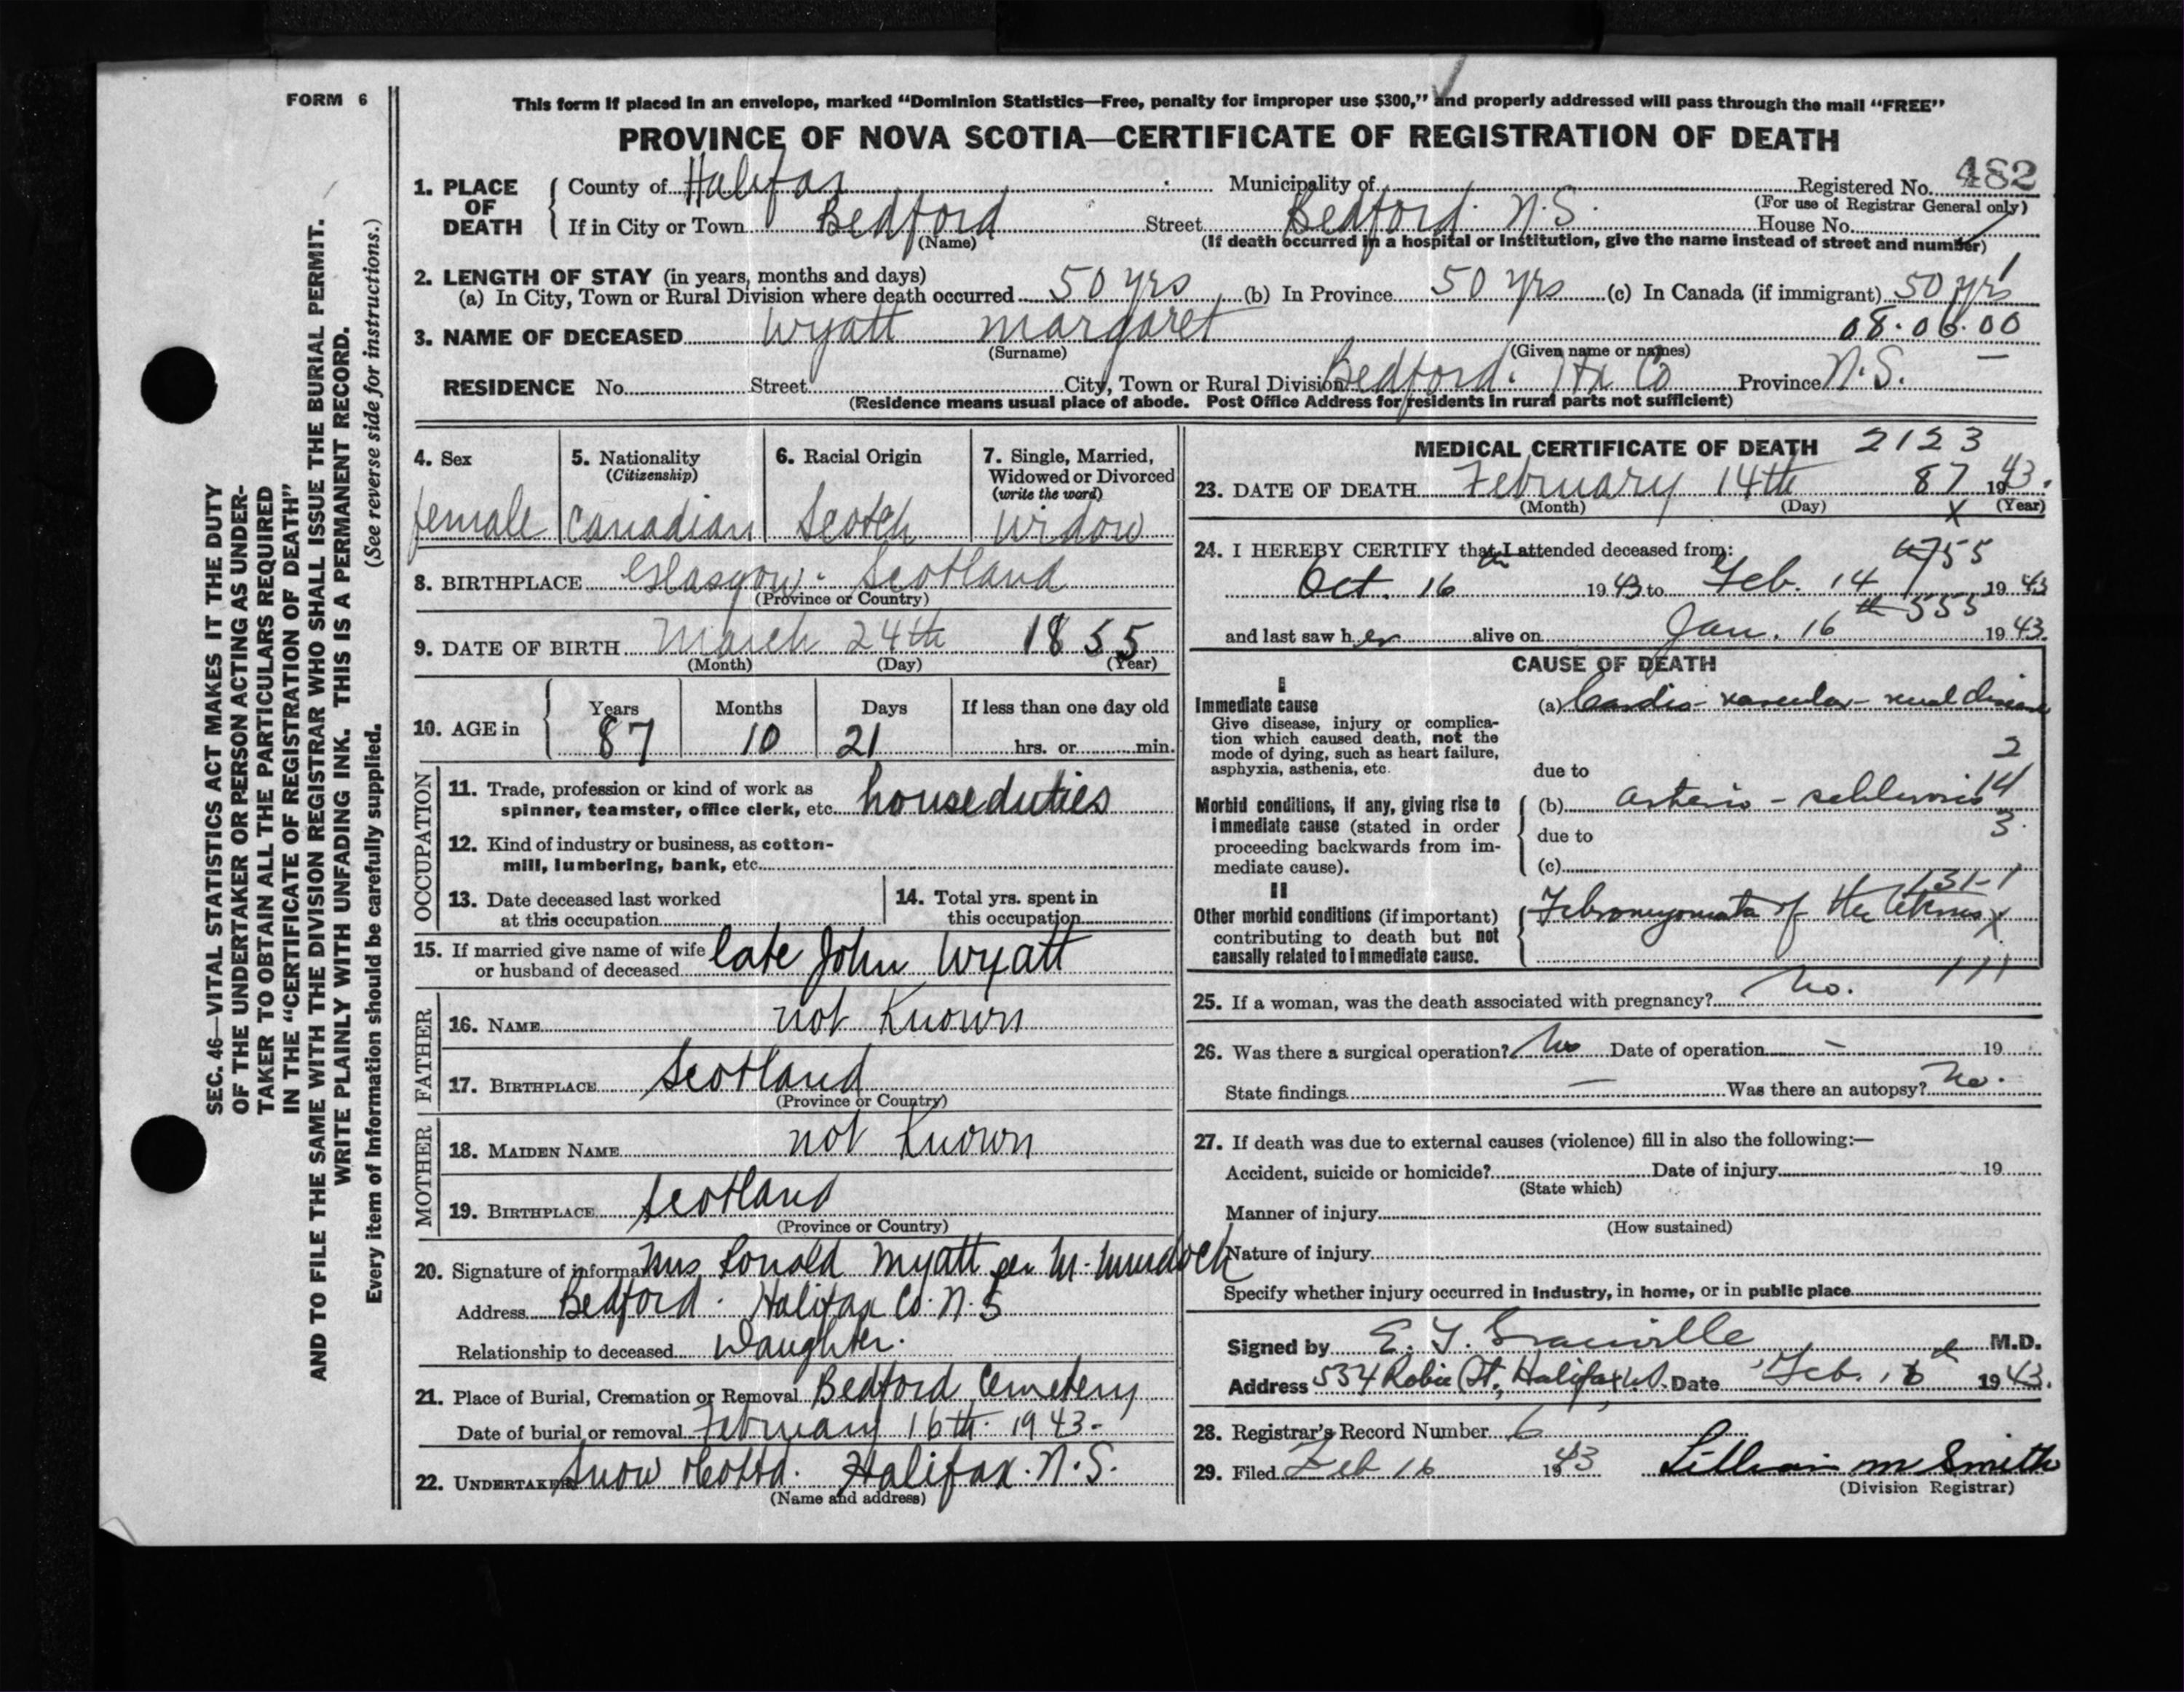 FORM 6
This form if placed in an envelope, marked “Dominion Statistics—Free, penalty for improper use $300,” and properly addressed will pass through the mail “FREE”
PROVINCE OF NOVA SCOTIA—CERTIFICATE OF REGISTRATION OF DEATH
482
1. PLACE OF DEATH County of Halifax Municipality of Registered No.
(For use of Registrar General only)
If in City or Town Bedford Street Bedford. N.S. House No.
(Name) (If death occurred in a hospital or institution, give the name instead of street and number)
2. LENGTH OF STAY (in years, months and days)
(a) In City, Town or Rural Division where death occurred 50 yrs (b) In Province 50 yrs (c) In Canada (if immigrant) 50 yrs
08.06.00
3. NAME OF DECEASED Wyatt Margaret
(Surname) (Given name or names)
RESIDENCE No. Street City, Town or Rural Division Bedford. Hx Co Province N.S.
(Residence means usual place of abode. Post Office Address for residents in rural parts not sufficient)
4. Sex
female
5. Nationality
(Citizenship)
Canadian
6. Racial Origin
Scotch
7. Single, Married,
Widowed or Divorced
(write the word)
Widow
8. BIRTHPLACE Glasgow. Scotland
(Province or Country)
9. DATE OF BIRTH March 24th 1855
(Month) (Day) (Year)
10. AGE in Years Months Days If less than one day old
87 10 21 hrs. or min.
OCCUPATION
11. Trade, profession or kind of work as
spinner, teamster, office clerk, etc. houseduties
12. Kind of industry or business, as cotton-
mill, lumbering, bank, etc.
13. Date deceased last worked
at this occupation
14. Total yrs. spent in
this occupation
15. If married give name of wife
or husband of deceased late John Wyatt
FATHER
16. NAME not Known
17. BIRTHPLACE Scotland
(Province or Country)
MOTHER
18. MAIDEN NAME not Known
19. BIRTHPLACE Scotland
(Province or Country)
20. Signature of informant Mrs Ronald Myatt per M. Murdock
Address Bedford. Halifax Co. N.S
Relationship to deceased Daughter.
21. Place of Burial, Cremation or Removal Bedford Cemetery
Date of burial or removal February 16th. 1943-
22. UNDERTAKER Snow Halifax. N.S.
(Name and address)
MEDICAL CERTIFICATE OF DEATH 2123
23. DATE OF DEATH February 14th 87 1943.
(Month) (Day) (Year)
X
24. I HEREBY CERTIFY that I attended deceased from:
755
Oct. 16th 1943 to Feb. 14 1943
555
and last saw her alive on Jan. 16th 1943.
CAUSE OF DEATH
I
Immediate cause
Give disease, injury or complica-
tion which caused death, not the
mode of dying, such as heart failure,
asphyxia, asthenia, etc.
(a) Cardio-vascular-renal disease
2
due to
Morbid conditions, if any, giving rise to
immediate cause (stated in order
proceeding backwards from im-
mediate cause).
(b) arterio-schlerosis 14
due to 3.
(c)
131-1
II
Other morbid conditions (if important)
contributing to death but not
causally related to immediate cause.
Febromyomata of the Uterus X
111
25. If a woman, was the death associated with pregnancy? No.
26. Was there a surgical operation? No Date of operation — 19
State findings — Was there an autopsy? No.
27. If death was due to external causes (violence) fill in also the following:—
Accident, suicide or homicide? Date of injury 19
(State which)
Manner of injury
(How sustained)
Nature of injury
Specify whether injury occurred in industry, in home, or in public place
Signed by E. T. Granville M.D.
Address 534 Robie St., Halifax N.S. Date Feb. 16th 1943.
28. Registrar's Record Number 6
29. Filed Feb 16 1943 Lillian M Smith
(Division Registrar)
SEC. 46—VITAL STATISTICS ACT MAKES IT THE DUTY
OF THE UNDERTAKER OR PERSON ACTING AS UNDER-
TAKER TO OBTAIN ALL THE PARTICULARS REQUIRED
IN THE “CERTIFICATE OF REGISTRATION OF DEATH”
AND TO FILE THE SAME WITH THE DIVISION REGISTRAR WHO SHALL ISSUE THE BURIAL PERMIT.
WRITE PLAINLY WITH UNFADING INK. THIS IS A PERMANENT RECORD.
Every item of information should be carefully supplied. (See reverse side for instructions.)